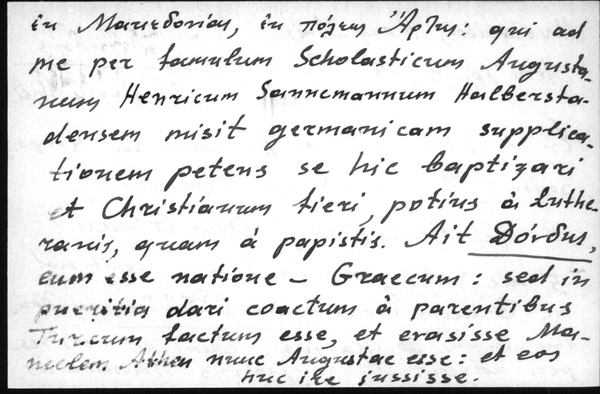 in Macedonia, in πόλει Ἄρτης: qui ad
me per famulum Scholasticum Augusta-
num Henricum Sannemannum Halbersta-
densem misit germanicam supplica-
tionem petens se hic baptizari
et Christianum fieri, potius à Luthe-
ranis, quam à papistis. Ait Dórdus,
eum esse natione – Graecum: sed in
pueritia dari coactum à parentibus
Turcum factum esse, et evasisse Ma-
nuelem nunc Augustae esse: et eos
huc ire jussisse.